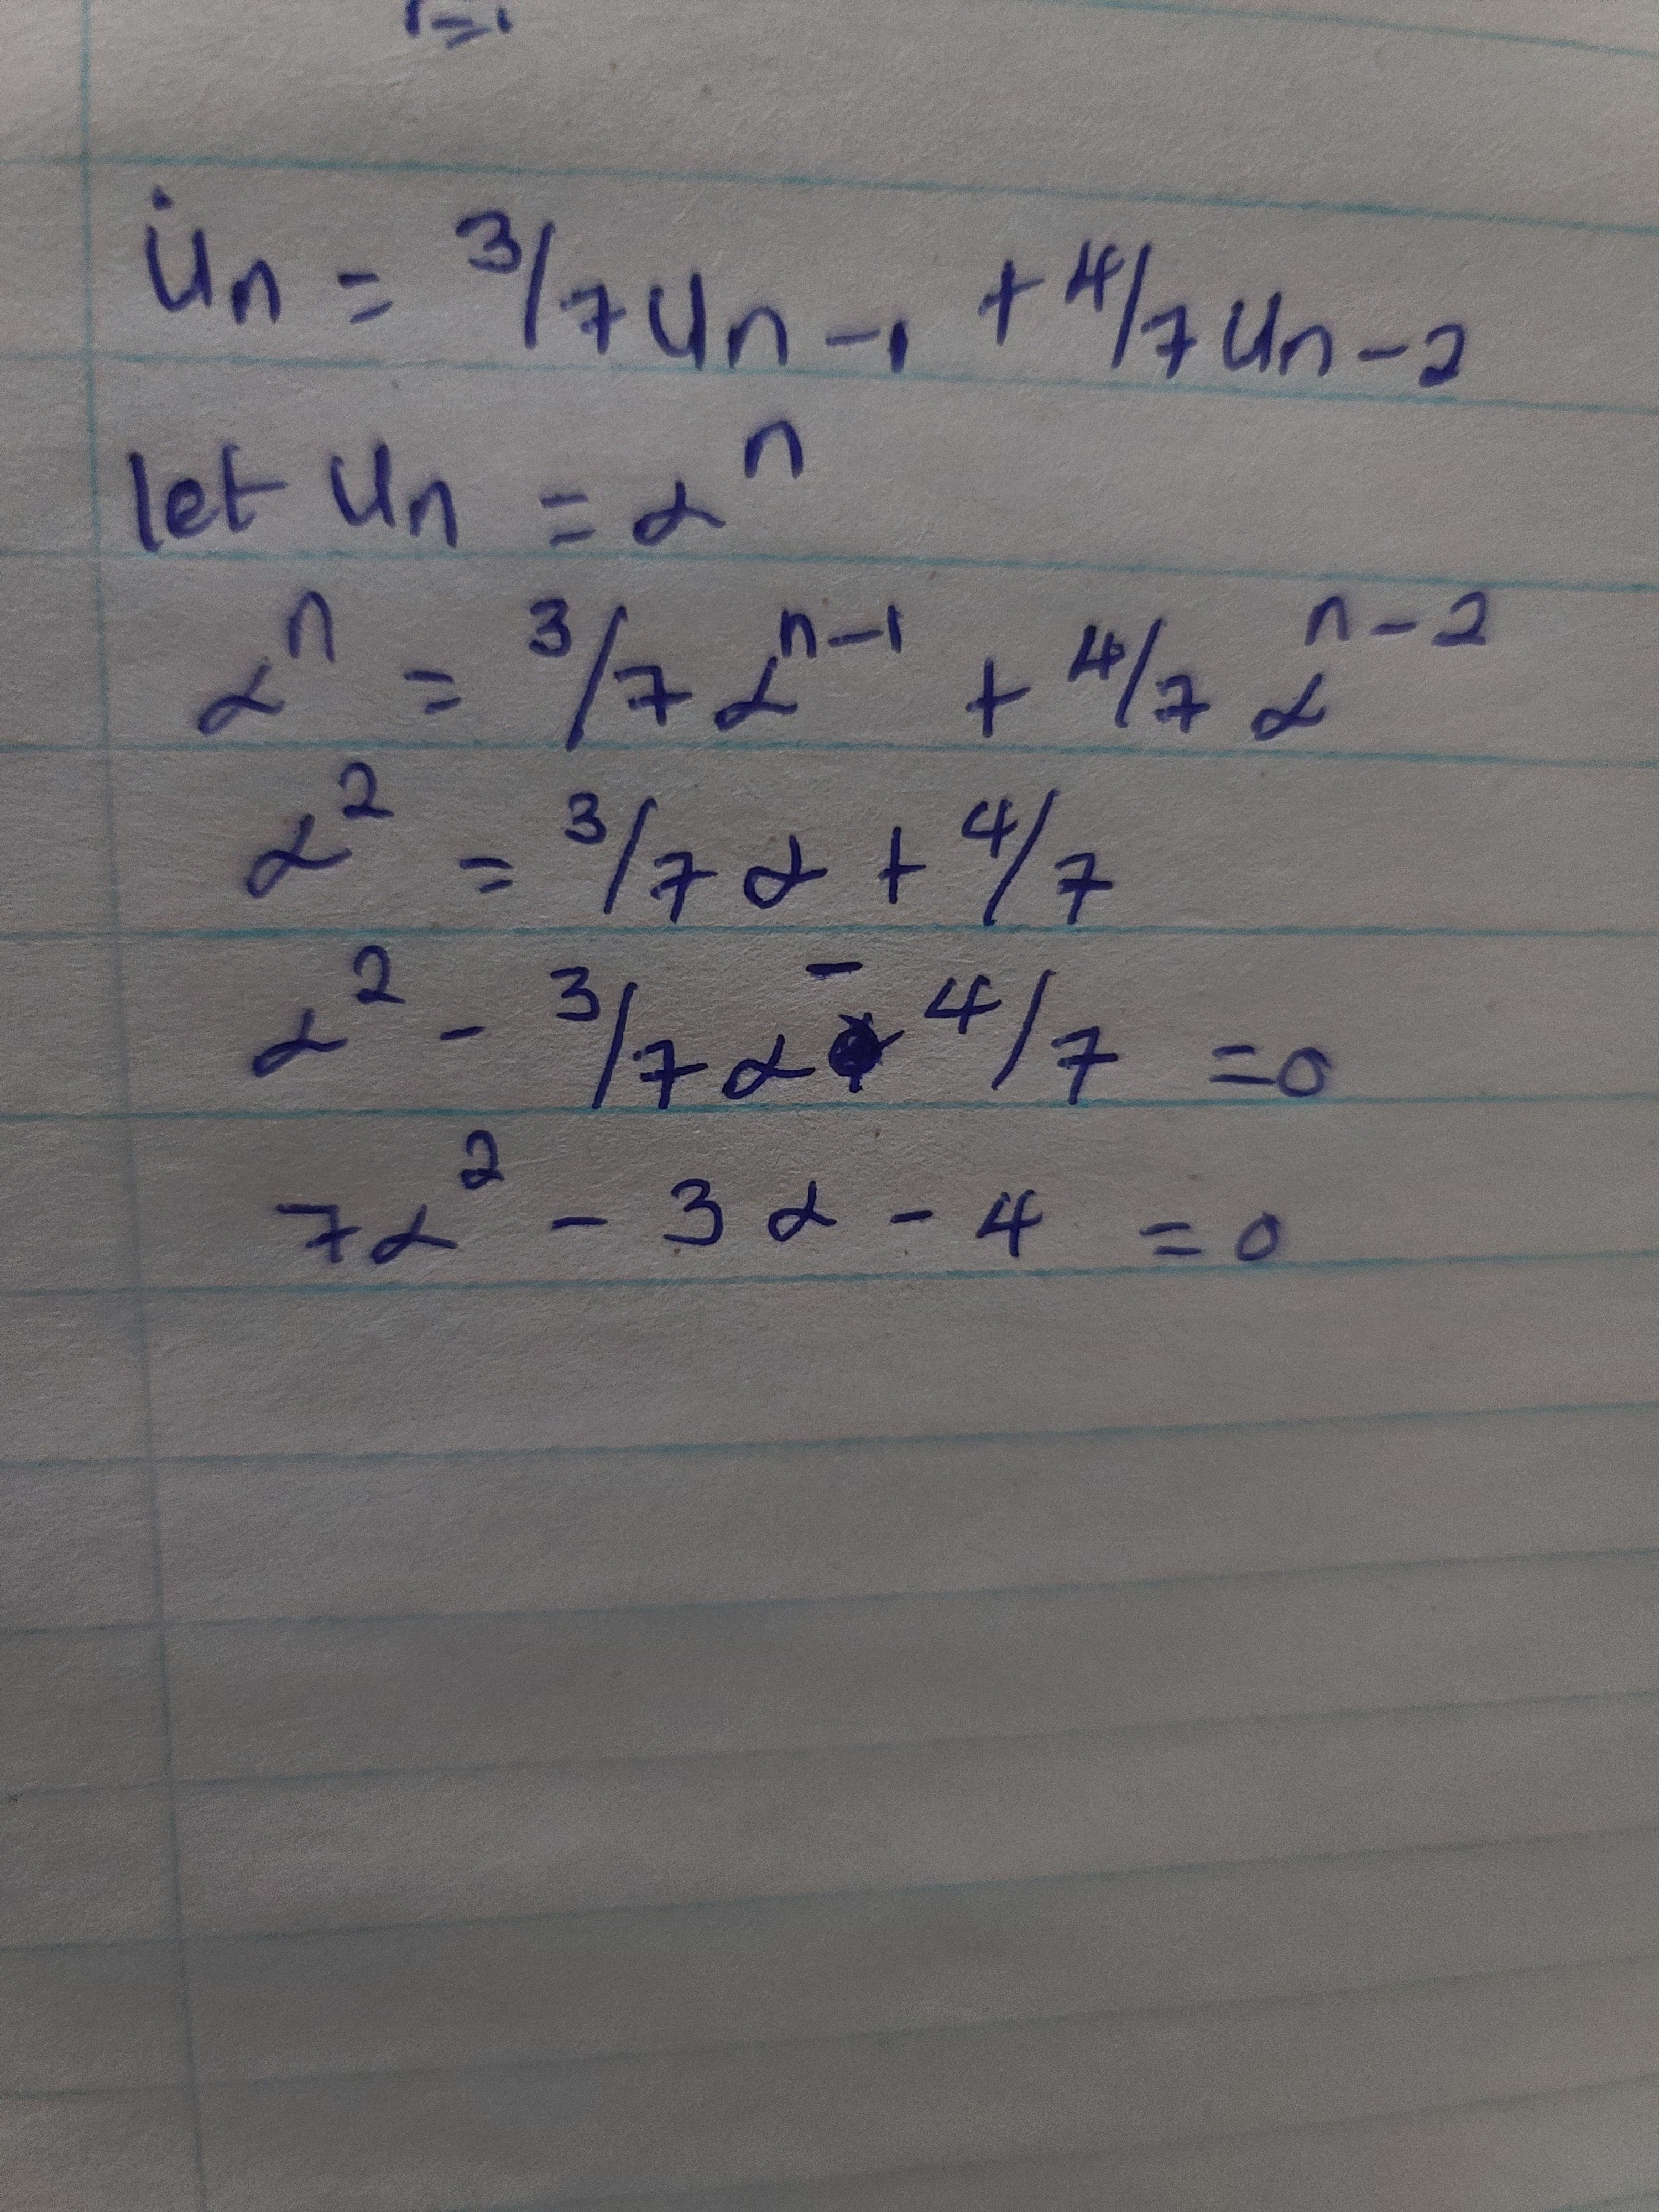 r=1
Un = 3/7 Un-1 + 4/7 Un-2
let Un = α^n
α^n = 3/7 α^n-1 + 4/7 α^n-2
α^2 = 3/7 α + 4/7
α^2 - 3/7 α - 4/7 = 0
7α^2 - 3α - 4 = 0